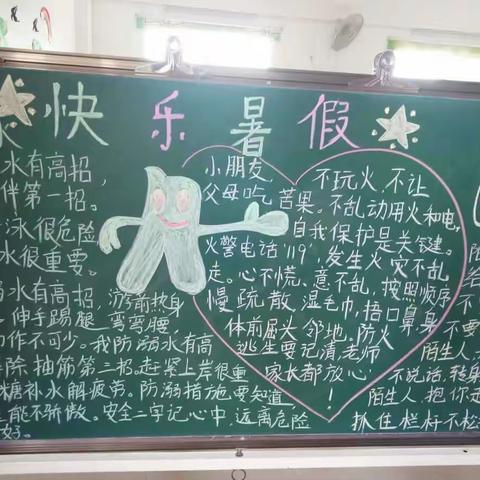 快乐暑假
水有高招，
伴第一招。
泳很危险
水很重要。
水有高招，游前热身
伸手踢腿弯弯腰，
动作不可少。我防溺水有高
抽筋第三招。赶紧上岸很重
糖补水解疲劳。防溺措施要知道
能不骄傲。安全二字记心中，远离危险
好。
小朋友不玩火，不让
父母吃苦果。不乱动用火和电，
自我保护是关键。
火警电话"119"，发生火灾不乱
走。心不慌、意不乱，按照顺序
慢疏散，湿毛巾，捂口鼻身
体前屈头邻地，防火
逃生要记清，老师
家长都放心！
给
不
不要
陌生人，
不说话，转身
陌生人，抱你走
抓住栏杆不松